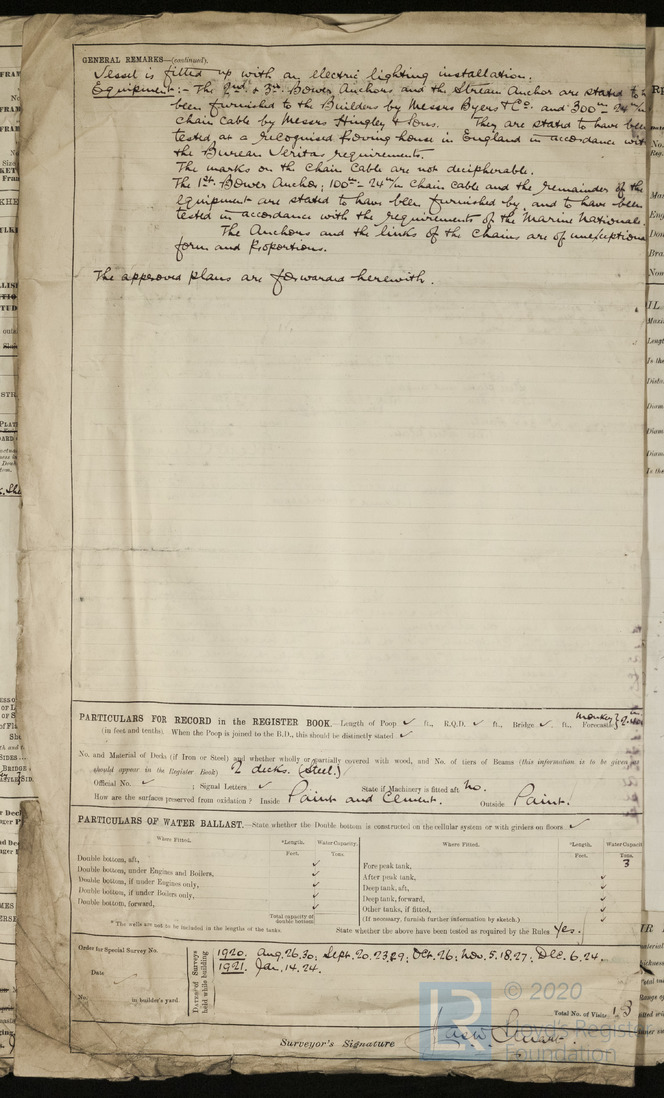 GENERAL REMARKS—(continued).
Vessel is fitted up with an electric lighting installation.
Equipment:- The 2nd & 3rd Bower Anchors and the Stream Anchor are stated to
been furnished to the Builders by Messrs Byers & Co. and 300 24 m/m
chain cable by Messrs Hingley & Sons. They are stated to have been
tested at a recognised Proving house in England in accordance with
the Bureau Veritas requirements.
The marks on the chain cable are not decipherable.
The 1st Bower Anchor; 100 - 24 m/m chain cable and the remainder of the
equipment are stated to have been furnished by, and to have been
tested in accordance with the requirements of the Marine Nationale
The Anchors and the links of the chains are of unexceptiona
form and proportions.
The approved plans are forwarded herewith.
PARTICULARS FOR RECORD in the REGISTER BOOK.—Length of Poop ✓ ft., R.Q.D. ✓ ft., Bridge ✓ ft., Forecastle monkey
(in feet and tenths). When the Poop is joined to the B.D., this should be distinctly stated ✓
No. and Material of Decks (if Iron or Steel) and whether wholly or partially covered with wood, and No. of tiers of Beams (this information is to be given as
should appear in the Register Book) 2 decks. (Steel.)
Official No. ✓ ; Signal Letters ✓ State if Machinery is fitted aft No.
How are the surfaces preserved from oxidation? Inside Paint and Cement. Outside Paint.
PARTICULARS OF WATER BALLAST.—State whether the Double bottom is constructed on the cellular system or with girders on floors ✓
Where Fitted. *Length. Water Capacity. Where Fitted. *Length. Water Capacit
Feet. Tons. Feet. Tons.
Double bottom, aft, ✓ Fore peak tank, 3
Double bottom, under Engines and Boilers, ✓ After peak tank, ✓
Double bottom, if under Engines only, ✓ Deep tank, aft, ✓
Double bottom, if under Boilers only, ✓ Deep tank, forward, ✓
Double bottom, forward, ✓ Other tanks, if fitted, ✓
Total capacity of double bottom (If necessary, furnish further information by sketch.) ✓
* The wells are not to be included in the lengths of the tanks. State whether the above have been tested as required by the Rules Yes.
Order for Special Survey No.
Date ✓
No. in builder's yard.
DATES of Surveys held while building
1920. Aug. 26. 30; Sept. 20. 23. 29; Oct. 26; Nov. 5. 18. 27; Dec. 6. 24.
1921. Jan. 14. 24.
Total No. of Visits 13
Surveyor's Signature
LR © 2020
Lloyd's Register
Foundation